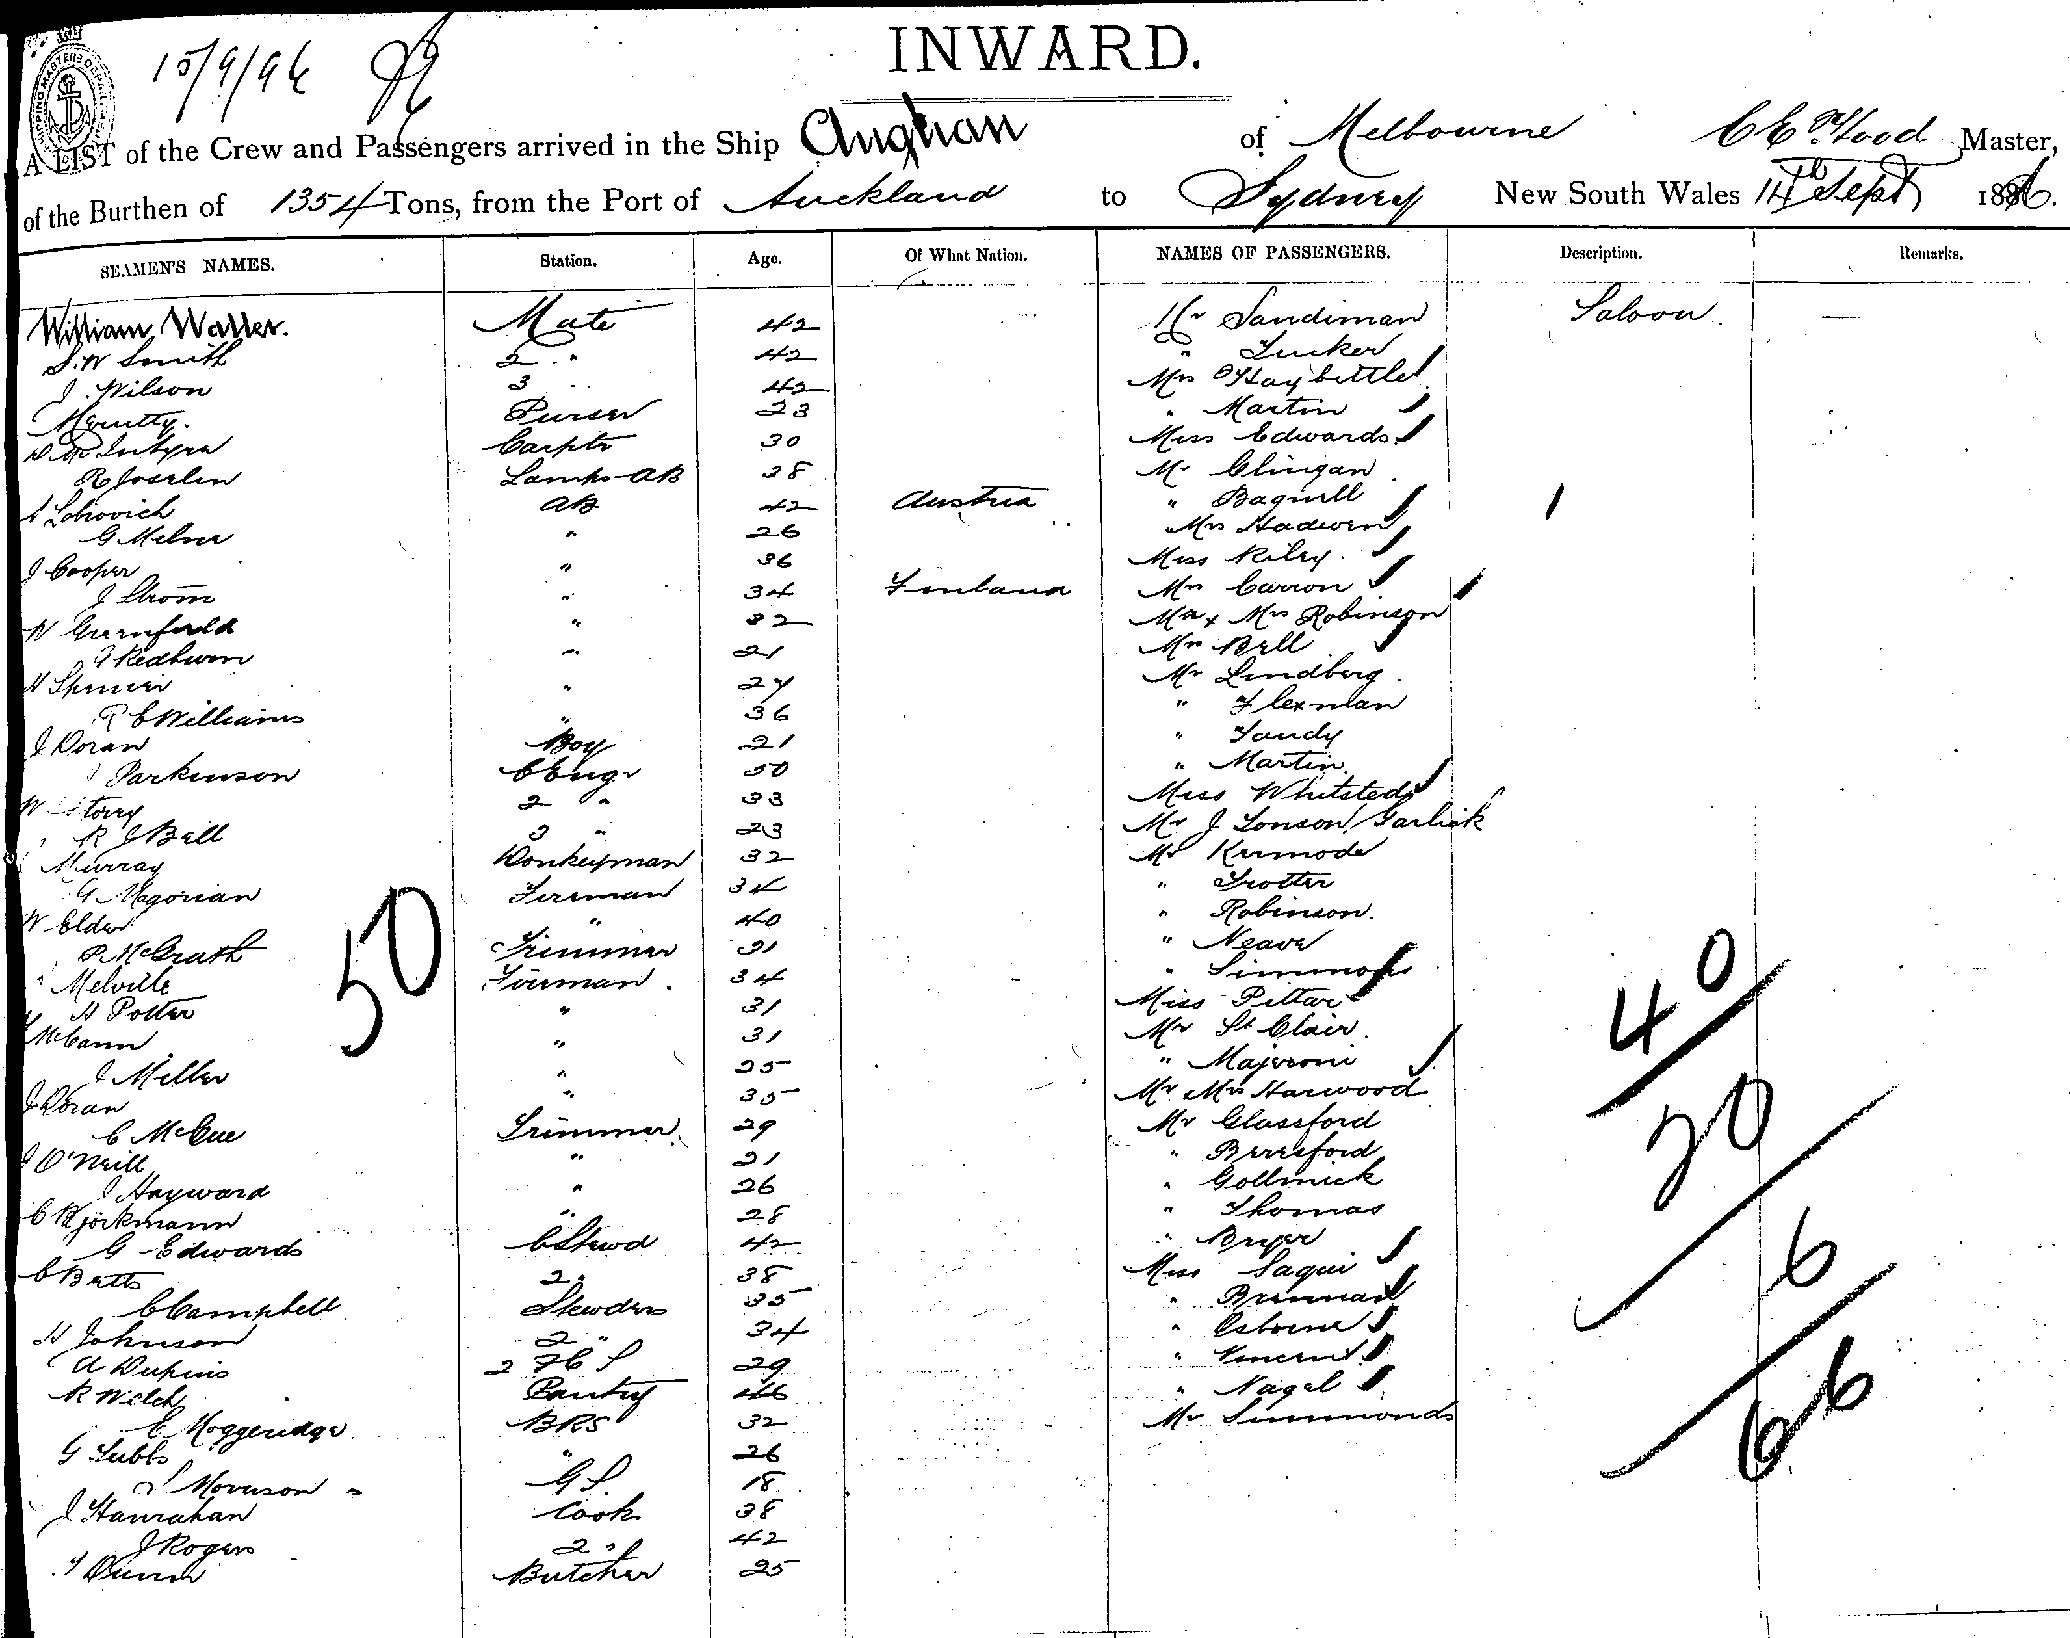 15/9/96
INWARD.
A LIST of the Crew and Passengers arrived in the Ship Anglian of Melbourne C E Wood Master,
of the Burthen of 1354 Tons, from the Port of Auckland to Sydney New South Wales 14th Sept 1896.
SEAMEN'S NAMES. Station. Age. Of What Nation. NAMES OF PASSENGERS. Description. Remarks.
William Waller. Mate 42 Mr Sandiman Saloon. —
S. W Smith 2 " 42 " Tucker
J. Wilson 3 " 42 Mrs Haybittle
Purser 23 " Martin
Carptr 30 Miss Edwards
R Joselin Lamps-AB 38 Mr Clingan
Lobrovich AB 42 Austria " Bagnell
G Milner " 26 Mrs Hadwen
J Cooper " 36 Miss Riley
J Strom " 34 Finland Mrs Carron
W Greenfield " 32 Mr & Mrs Robinson
" 21 Mrs Bell
H Spencer " 27 Mr Lindberg
R C Williams " 36 " Flexman
J Doran Boy 21 " Tandy
Parkinson C Engr 50 " Martin
W Storey 2 " 33 Miss Whitsted
R J Bell 3 " 23 Mr J Lonson Garlick
Murray Donkeyman 32 Mr Kermode
G Magorian Fireman 34 " Trotter
W Elder " 40 " Robinson.
P McGrath Trimmer 31 " Neave
Melville Fireman. 34 " Simmons
H Potter " 31 Miss Pittar
McCann " 31 Mr St Clair.
J Miller " 25 " Majeroni
J Doran " 35 Mr Mrs Harwood
C McCue Trimmer 29 Mr Glassford
J O'Neill " 21 " Berresford
J Hayward " 26 " Gollmick
C Bjorkmann " 28 " Thomas
G Edwards C Stewd 42 " Bryer
C Batts 2 " 38 Miss Saqui
C Campbell Stewdess 35 " Brennan
H Johnson 2 " 34 " Osborne
A Dupins 2 F C S 29 " Vincent
R Welch Pantry 46 " Nagel
E Moggeridge BRS 32 Mr Simmonds
G Tubbs " 26
Morrison G S. 18
J Hanrahan Cook 38
J Rogers 2 " 42
Dunn Butcher 25
50
40
20
6
66